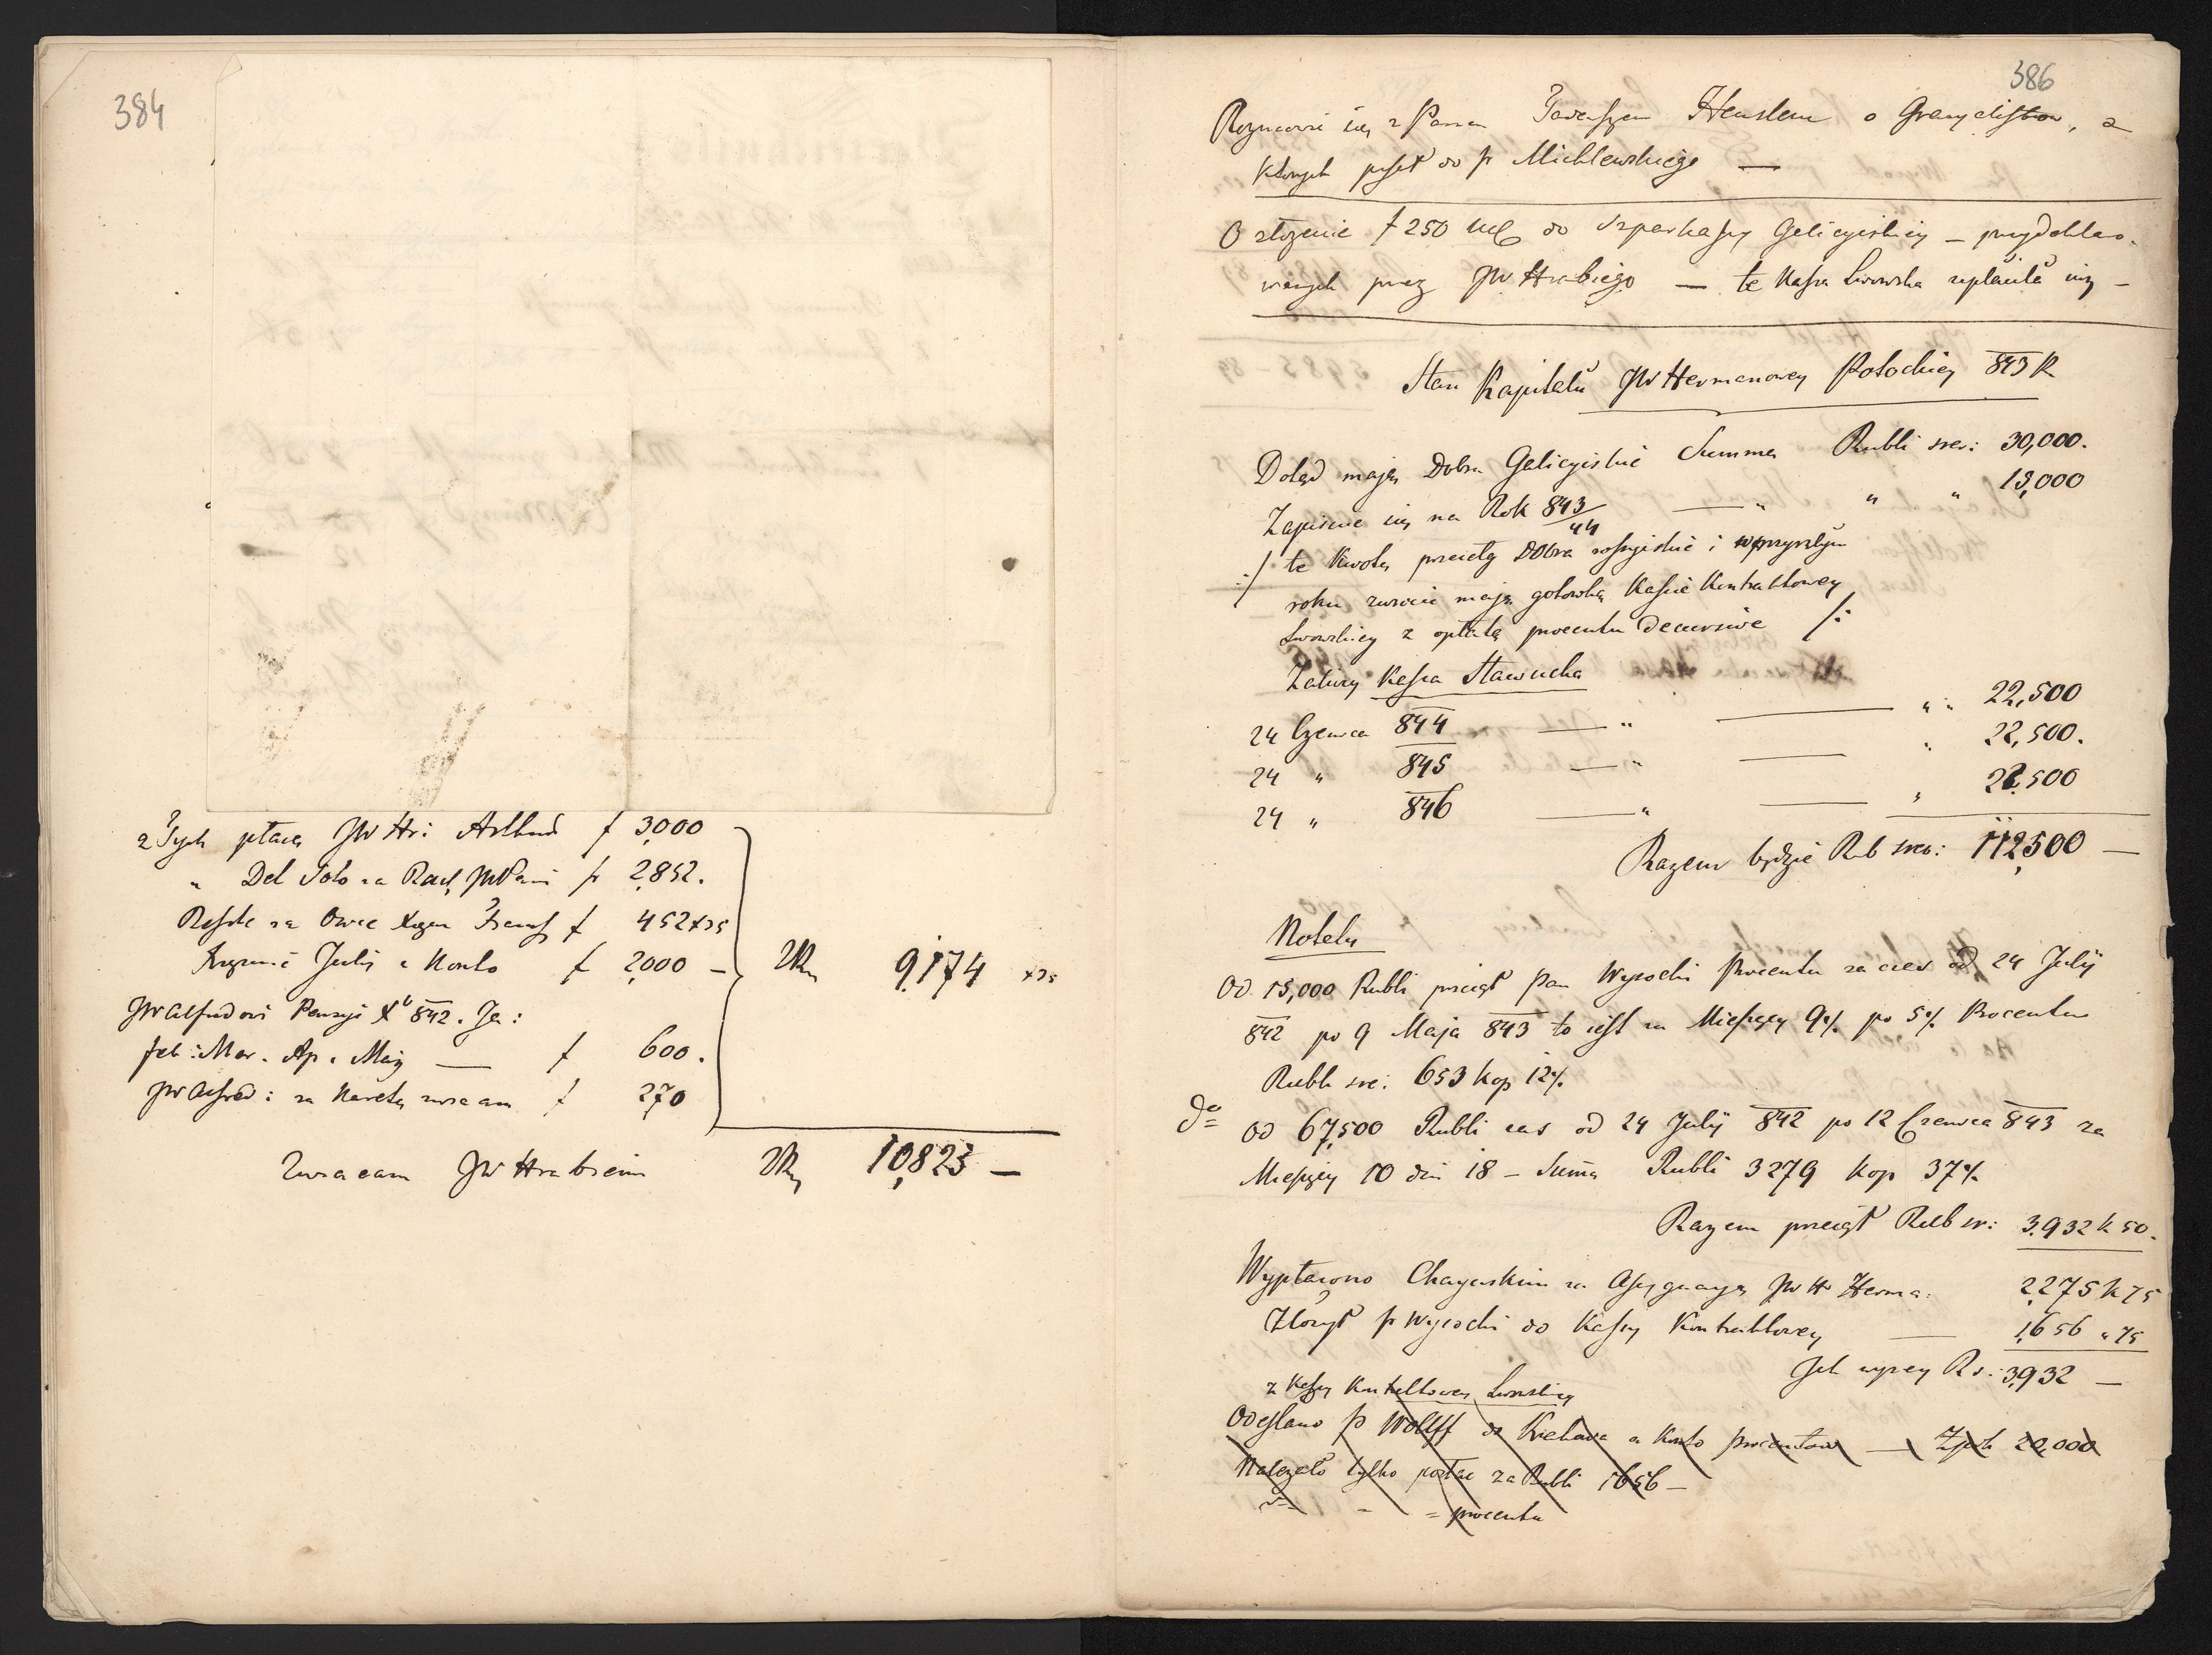 384
z Tych płacą JW Hr: Arthur f 3000
" Del Soto za Rach JWPani fr 2,852.
Reszte za Owce f 452 x 35
Juliy a Konto f 2,000 — 9,174 x 35
JW Alfredowi Pensyi 842.
feb: Mar. Ap. Maiy — f 600.
JW Alfred: za Karetę zwracam f 270
Zwracam JW Hrabiemu 10,823 —
386
Rozmówić się z Panem Tadeuszem o, z
których pisał do p Michlewskiego —
O złożenie f 250 do Szparkassy Galicyiskiey — przydeklaro-
wanych przez JW Hrabiego — te Kassa Lwowska zapłaciła —
Stan Kapitału JW Hermanowey Potockiey 843 R
Dotąd mają Dobra Galicyiskie Summę Rubli sre: 30,000.
Zapisuie się na Rok 843/44 — " " " 15,000
:/ te Kwotę przeięły Dobra rossyiskie i w przyszłym
roku zwrócić mają gotowką Kassie Kontraktowey
Lwowskiey z opłatą procentu decursive /:
Zaliczy Kassa Sławucka
24 Czerwca 844 — " — " " 22,500
24 " 845 — " — " 22,500.
24 " 846 — " — " 22,500
Razem będzie Rub sre: 112,500 —
Notela
Od 15,000 Rubli przeiął Pan Wysocki Procentu za czas od 24 July
842 po 9 Maja 843 to iest za Miesięcy 9½ po 5% Procentu
Rubli sre: 653 Kop 12½
do Od 67,500 Rubli czas od 24 July 842 po 12 Czerwca 843 za
Miesięcy 10 dni 18 — Suma Rubli 3279 Kop 37½
Razem przeiął Rub sr: 3,932 k 50.
Wypłacono Chayewskim za Assygnacyą JW H Herma: 2,275 k 75
Złożył p Wysocki do Kassy Kontraktowey — 1,656 " 75
Jak wyżey R s: 3,932 —
z Kassy Kontraktowey Lwowskiey
Odesłano p Wolff do Krakowa a Konto procentow — 20,000
Należało tylko posłać za Rubli 1656 —
" — " procentu